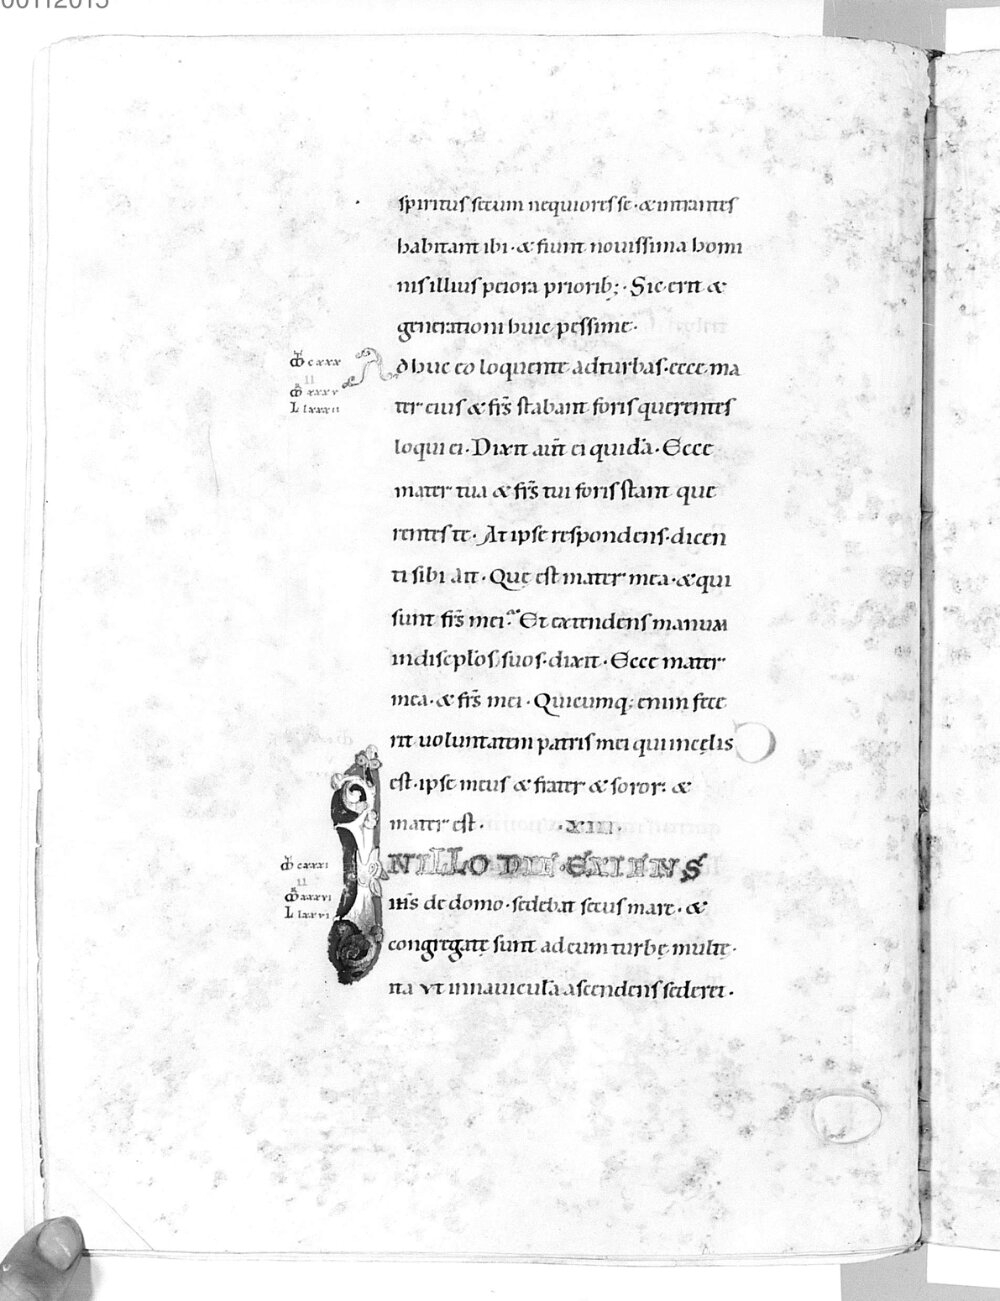 spiritus secum nequiores se · & intrantes
habitant ibi · & fiunt nouissima homi
nis illius peiora priorib; · Sic erit &
generationi huic pessime ·
Adhuc eo loquente ad turbas · ecce ma
ter eius & fr̄s stabant foris querentes
loqui ei · Dixit aut̄ ei quidā · Ecce
mater tua & fr̄s tui foris stant que
rentes te · At ipse respondens dicen
ti sibi ait · Que est mater mea · & qui
sunt fr̄s mei? Et extendens manum
in discipl̄os suos · dixit · Ecce mater
mea · & fr̄s mei · Quicumq; enim fece
rit uoluntatem patris mei qui in cęlis
est · ipse meus & frater & soror · &
mater est · · XIII ·
IN ILLO DIE · EXIENS
ih̄s de domo · sedebat secus mare · &
congregatę sunt ad eum turbę multę ·
ita ut in nauiculā ascendens sederet ·
M̄ cxxx
II
M̄ xxxv
L lxxxii
M̄ cxxxi
II
M̄ xxxvi
L lxxvi